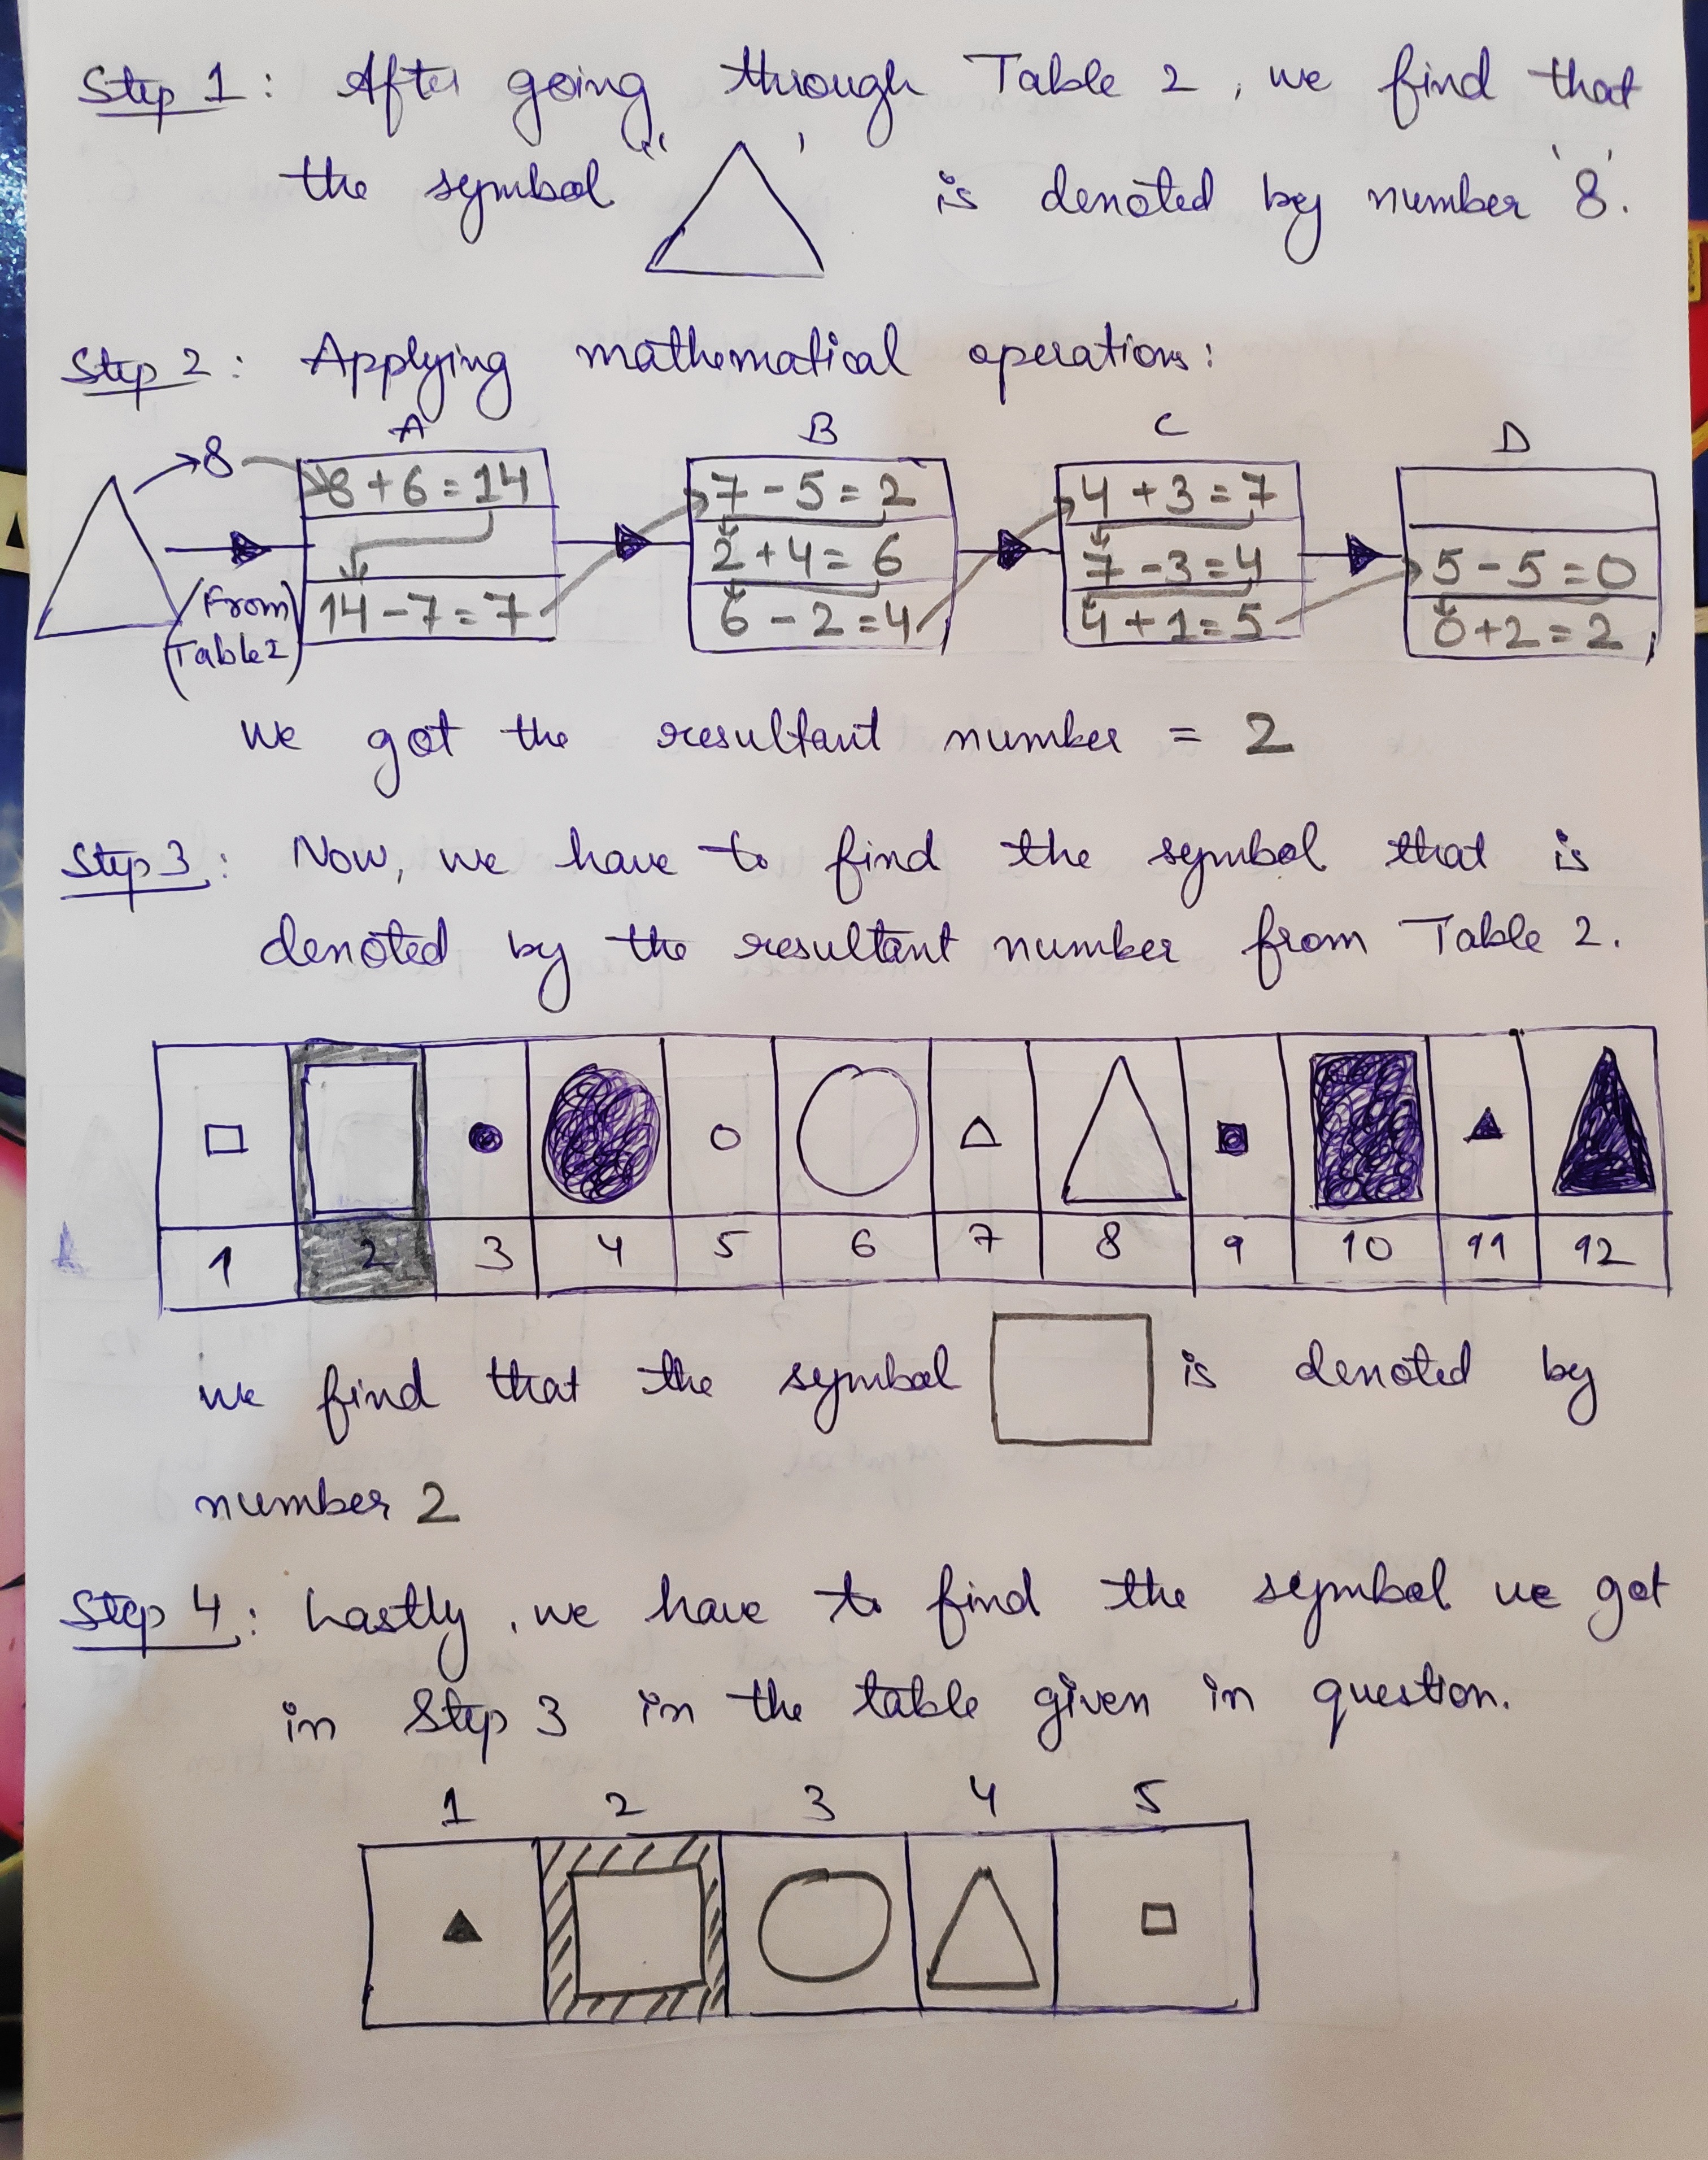 Step 1: After going through Table 2, we find that
the symbol " ' is denoted by number '8'.
Step 2: Applying mathematical operations:
A B C D
8
8+6=14 7-5=2 4+3=7
2+4=6 7-3=4 5-5=0
14-7=7 6-2=4 4+1=5 0+2=2
(From
Table2)
we got the resultant number = 2
Step 3: Now, we have to find the symbol that is
denoted by the resultant number from Table 2.
1 2 3 4 5 6 7 8 9 10 11 12
we find that the symbol is denoted by
number 2
Step 4: Lastly, we have to find the symbol we got
in Step 3 in the table given in question.
1 2 3 4 5